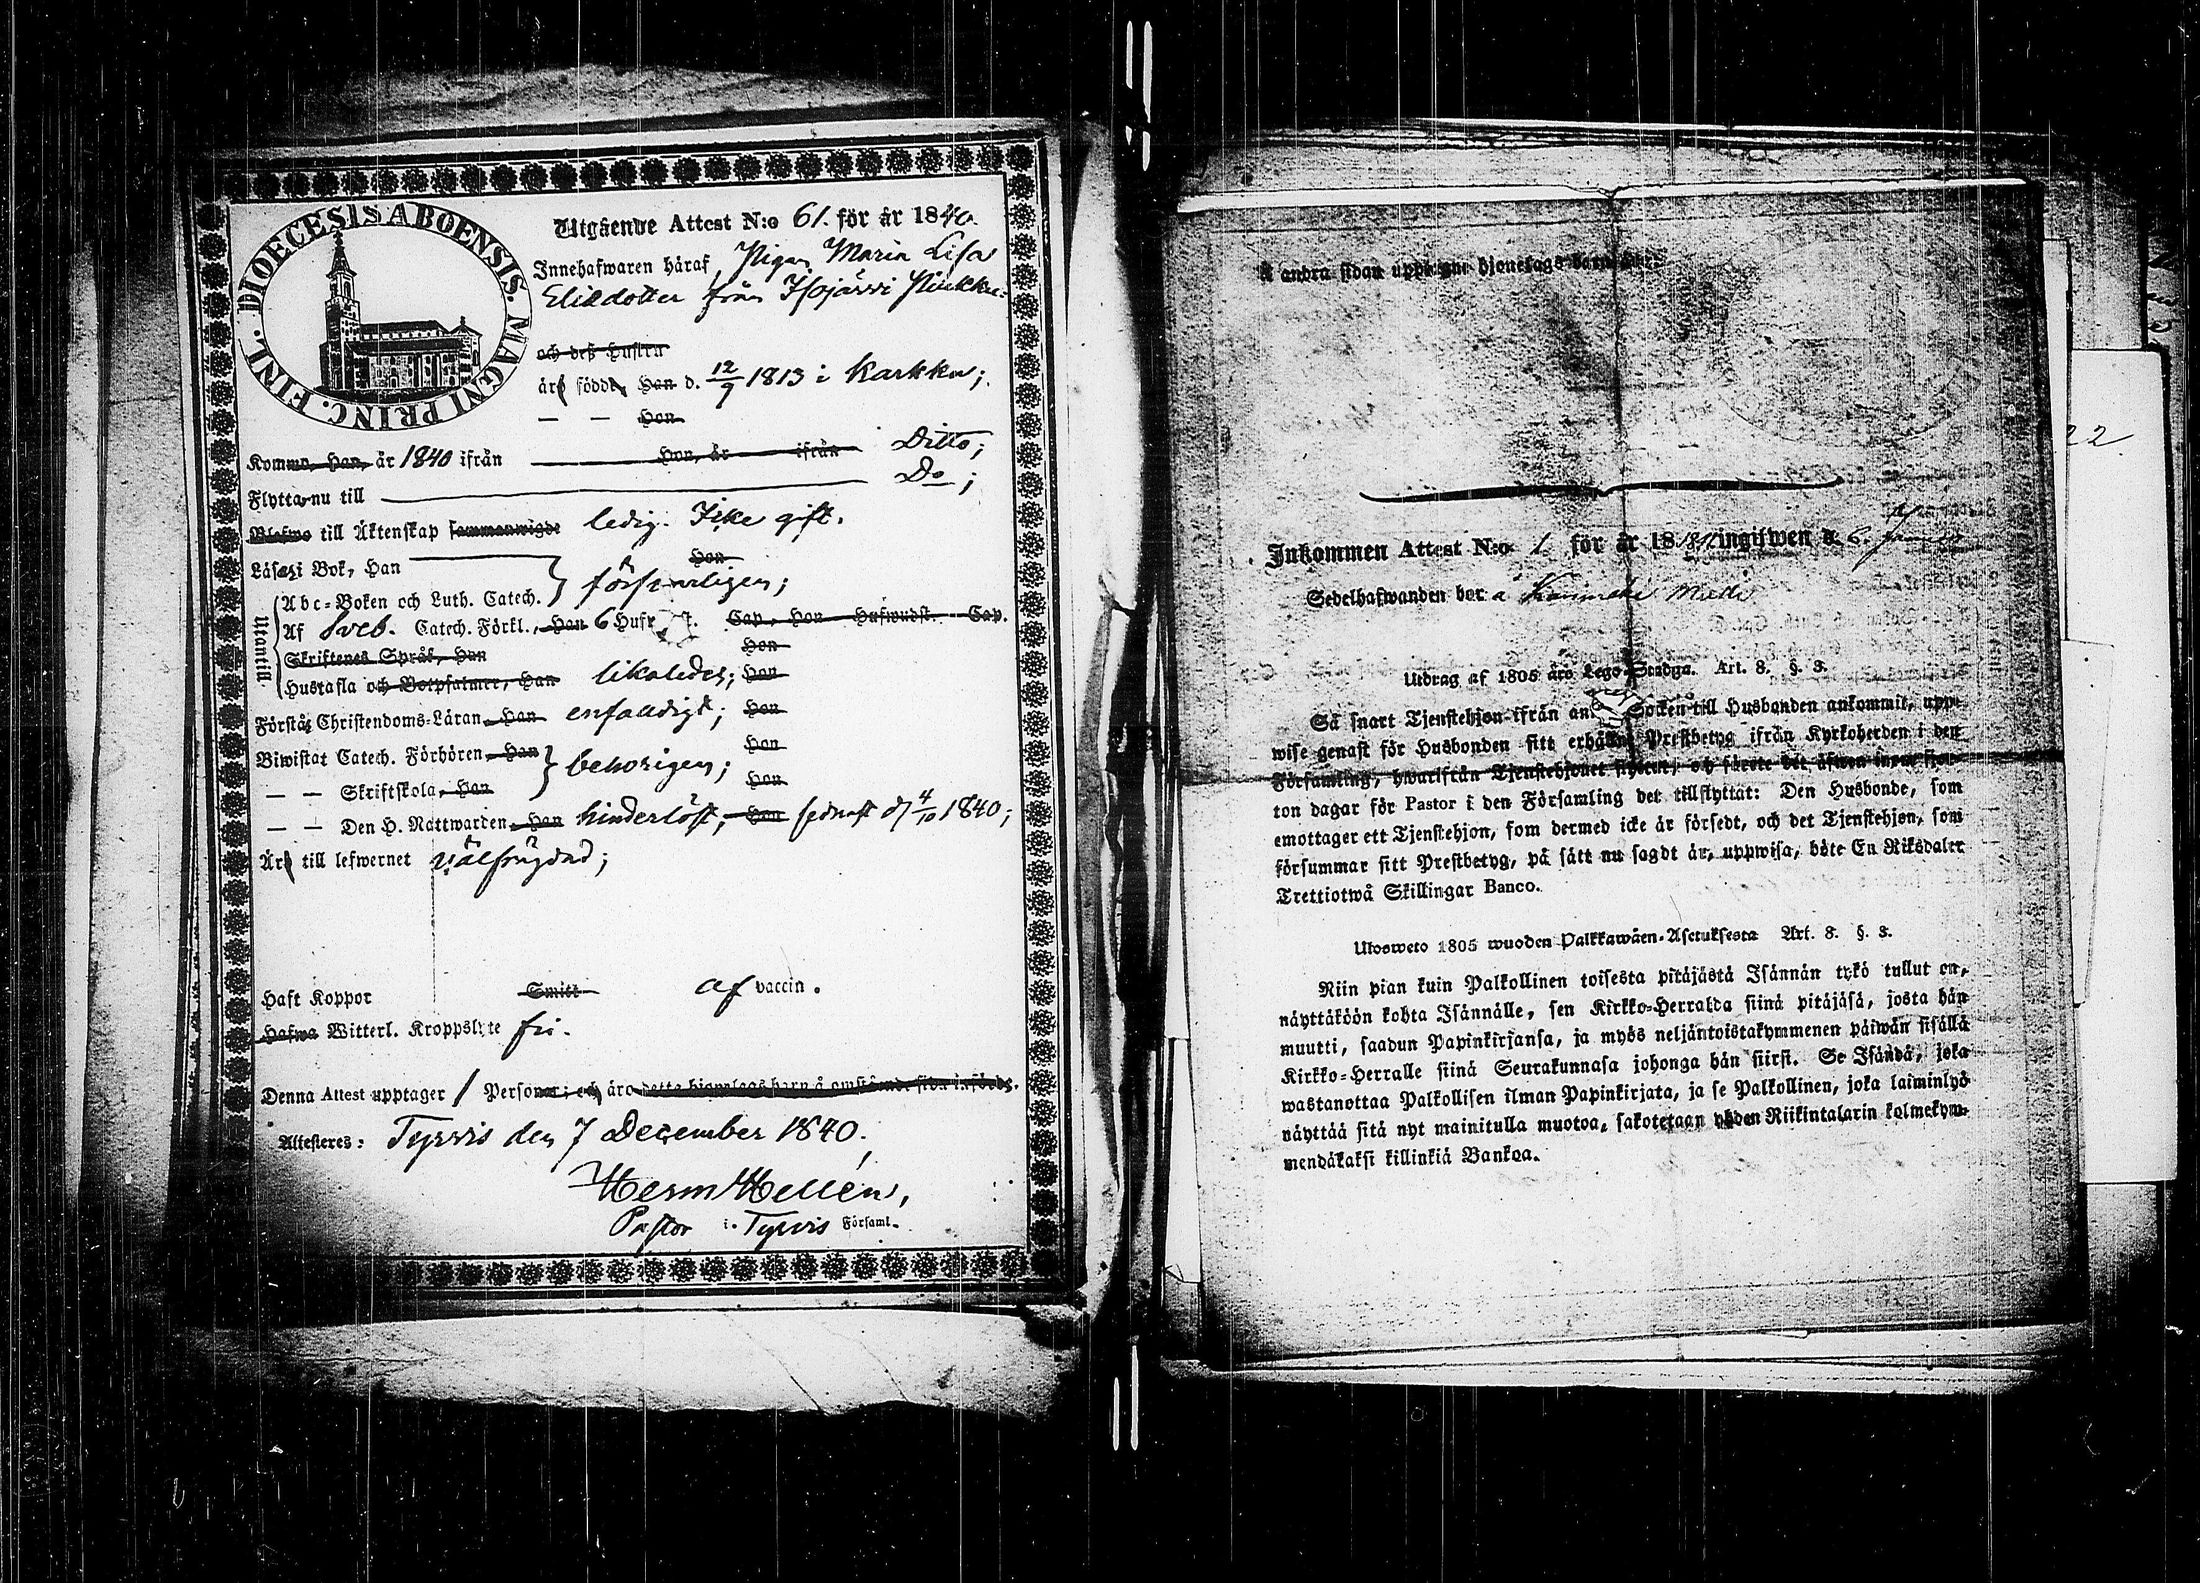 DIOECESIS ABOENSIS. MAGNI PRINC. FINL.
Utgående Attest N:o 61. för år 1840.
Innehafwaren häraf, Pigan Maria Lisa
Eliedotter från Isojärvi
och deß Hustru
är född, Han d. 12/9 1813 i Karkku;
— — Hon
Komm, Han, år 1840 ifrån Hon, år ifrån Ditto;
Flytta nu till Do;
Blefwo till Äktenskap sammanwigde ledig. Icke gift.
Läsa i Bok, Han Hon
Utantill
Abc-Boken och Luth. Catech. försvarligen;
Af Sveb. Catech. Förkl., Han 6 Cap., Hon Hufwudst. Cap.
Skriftenes Språk, Han Hon
Hustafla och Botpsalmer, Han likaledes; Hon
Förstå Christendoms-Läran Han enfaldigt; Hon
Biwistat Catech. Förhören Han Hon
behörigen;
— — Skriftskola, Han Hon
— — Den H. Nattwarden Han hinderlöst; Hon sednast d. 4/10 1840;
Är till lefwernet välfrägdad;
Haft Koppor Smitt af vaccin.
Hafwa Witterl. Kroppslyte fri.
Denna Attest upptager 1 Personer; och äro detta hjonelags barn å omstående sida införde.
Attesteres: Tyrvis den 7 December 1840.
Herm Hellén,
Pastor i Tyrvis Församl.
Å andra sidan upptagne hjonelags barn äro:
22
Inkommen Attest N:o 1. för år 1841 ingifwen d. 6.
Sedelhafwanden bor å
Utdrag af 1805 års Lego-Stadga. Art. 8. §. 3.
Så snart Tjenstehjon ifrån Socken till Husbonden ankommit, uppe
wise genast för Husbonden sitt erhållne Prestbetyg ifrån Kyrkoherden i den
Församling, hwarifrån Tjenstehjonet flyttat, och
ton dagar för Pastor i den Församling det tillflyttat: Den Husbonde, som
emottager ett Tjenstehjon, som dermed icke är försedt, och det Tjenstehjon, som
försummar sitt Prestbetyg, på sätt nu sagdt är, uppwisa, böte En Riksdaler
Trettiotwå Skillingar Banco.
Ulosweto 1805 wuoden Palkkawäen-Asetuksesta Art. 8. §. 3.
Niin pian kuin Palkollinen toisesta pitäjästä Isännän tykö tullut on,
näyttäköön kohta Isännälle, sen Kirkko-Herralda siinä pitäjäsä, josta hän
muutti, saadun Papinkirjansa, ja myös neljäntoistakymmenen päiwän sisällä
Kirkko-Herralle siinä Seurakunnasa johonga hän siirsi. Se Isändä, joka
wastanottaa Palkollisen ilman Papinkirjata, ja se Palkollinen, joka laiminlyö
näyttää sitä nyt mainitulla muotoa, sakotetaan yhden Riikintalarin kolmekym-
mendäkaksi killinkiä Bankoa.